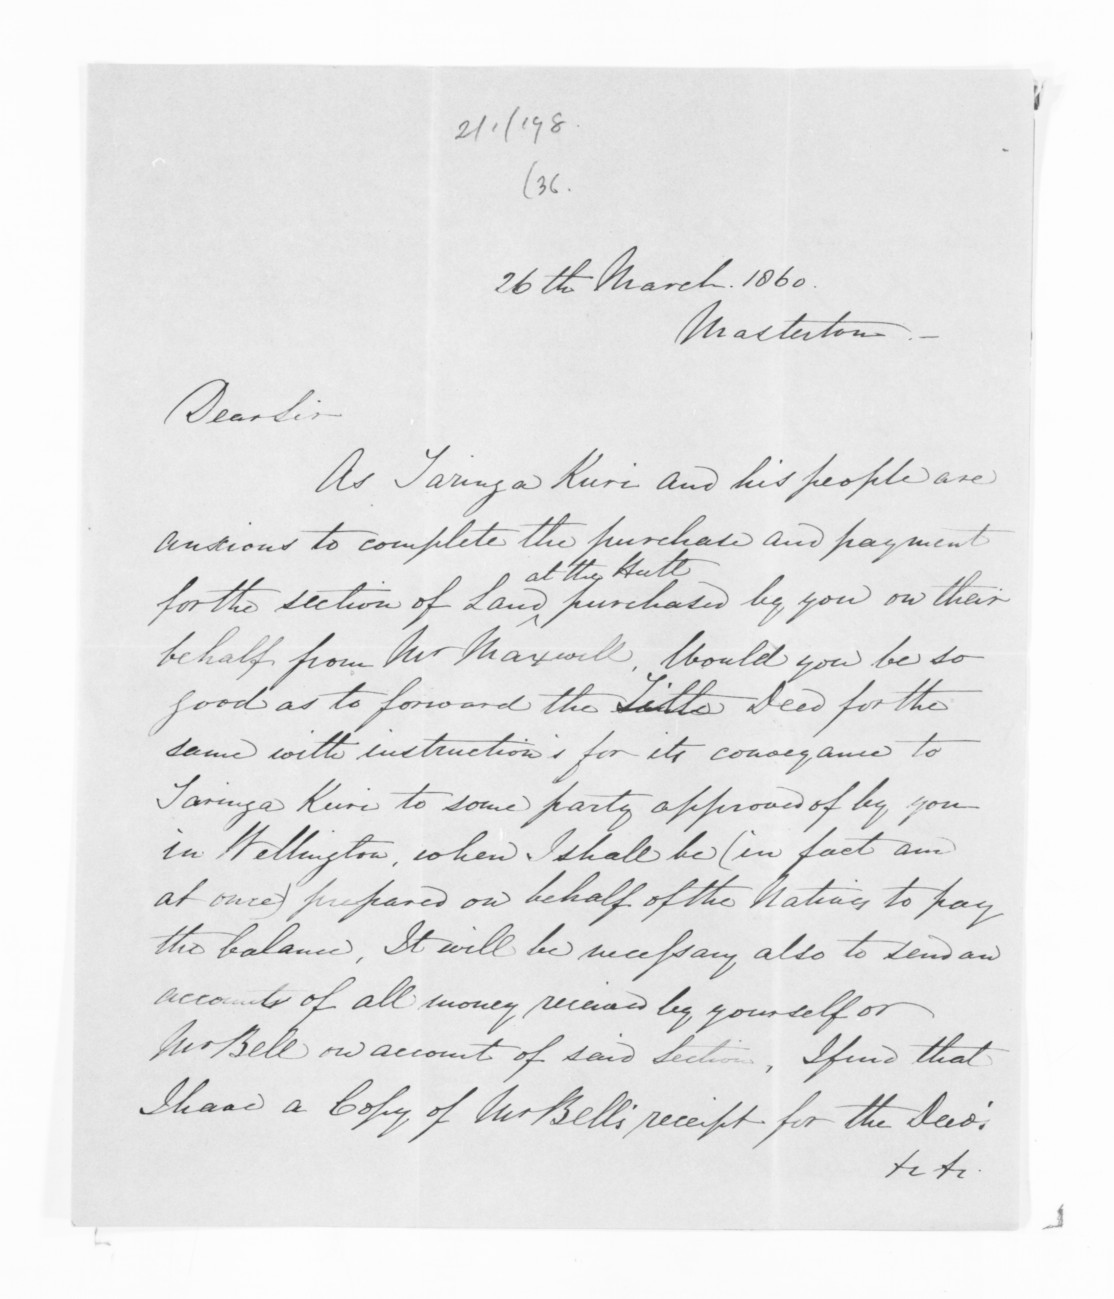 21/1/198.
(36.
26th March. 1860.
Masterton. –
Dear Sir
As Taringa Kuri and his people are
anxious to complete the purchase and payment
at the Hutt
for the section of Land purchased by you on their
behalf from Mr Maxwell, Would you be so
good as to forward the Title Deed for the
same with instruction's for its conveyance to
Taringa Kuri to some party approved of by you
in Wellington, when I shall be (in fact am
at once) prepared on behalf of the Natives to pay
the balance, It will be necessary also to send an
accounts of all money received by yourself or
Mr Bell on account of said Section, I find that
I have a Copy of Mr Bell's receipt for the Deed's
&c &c.